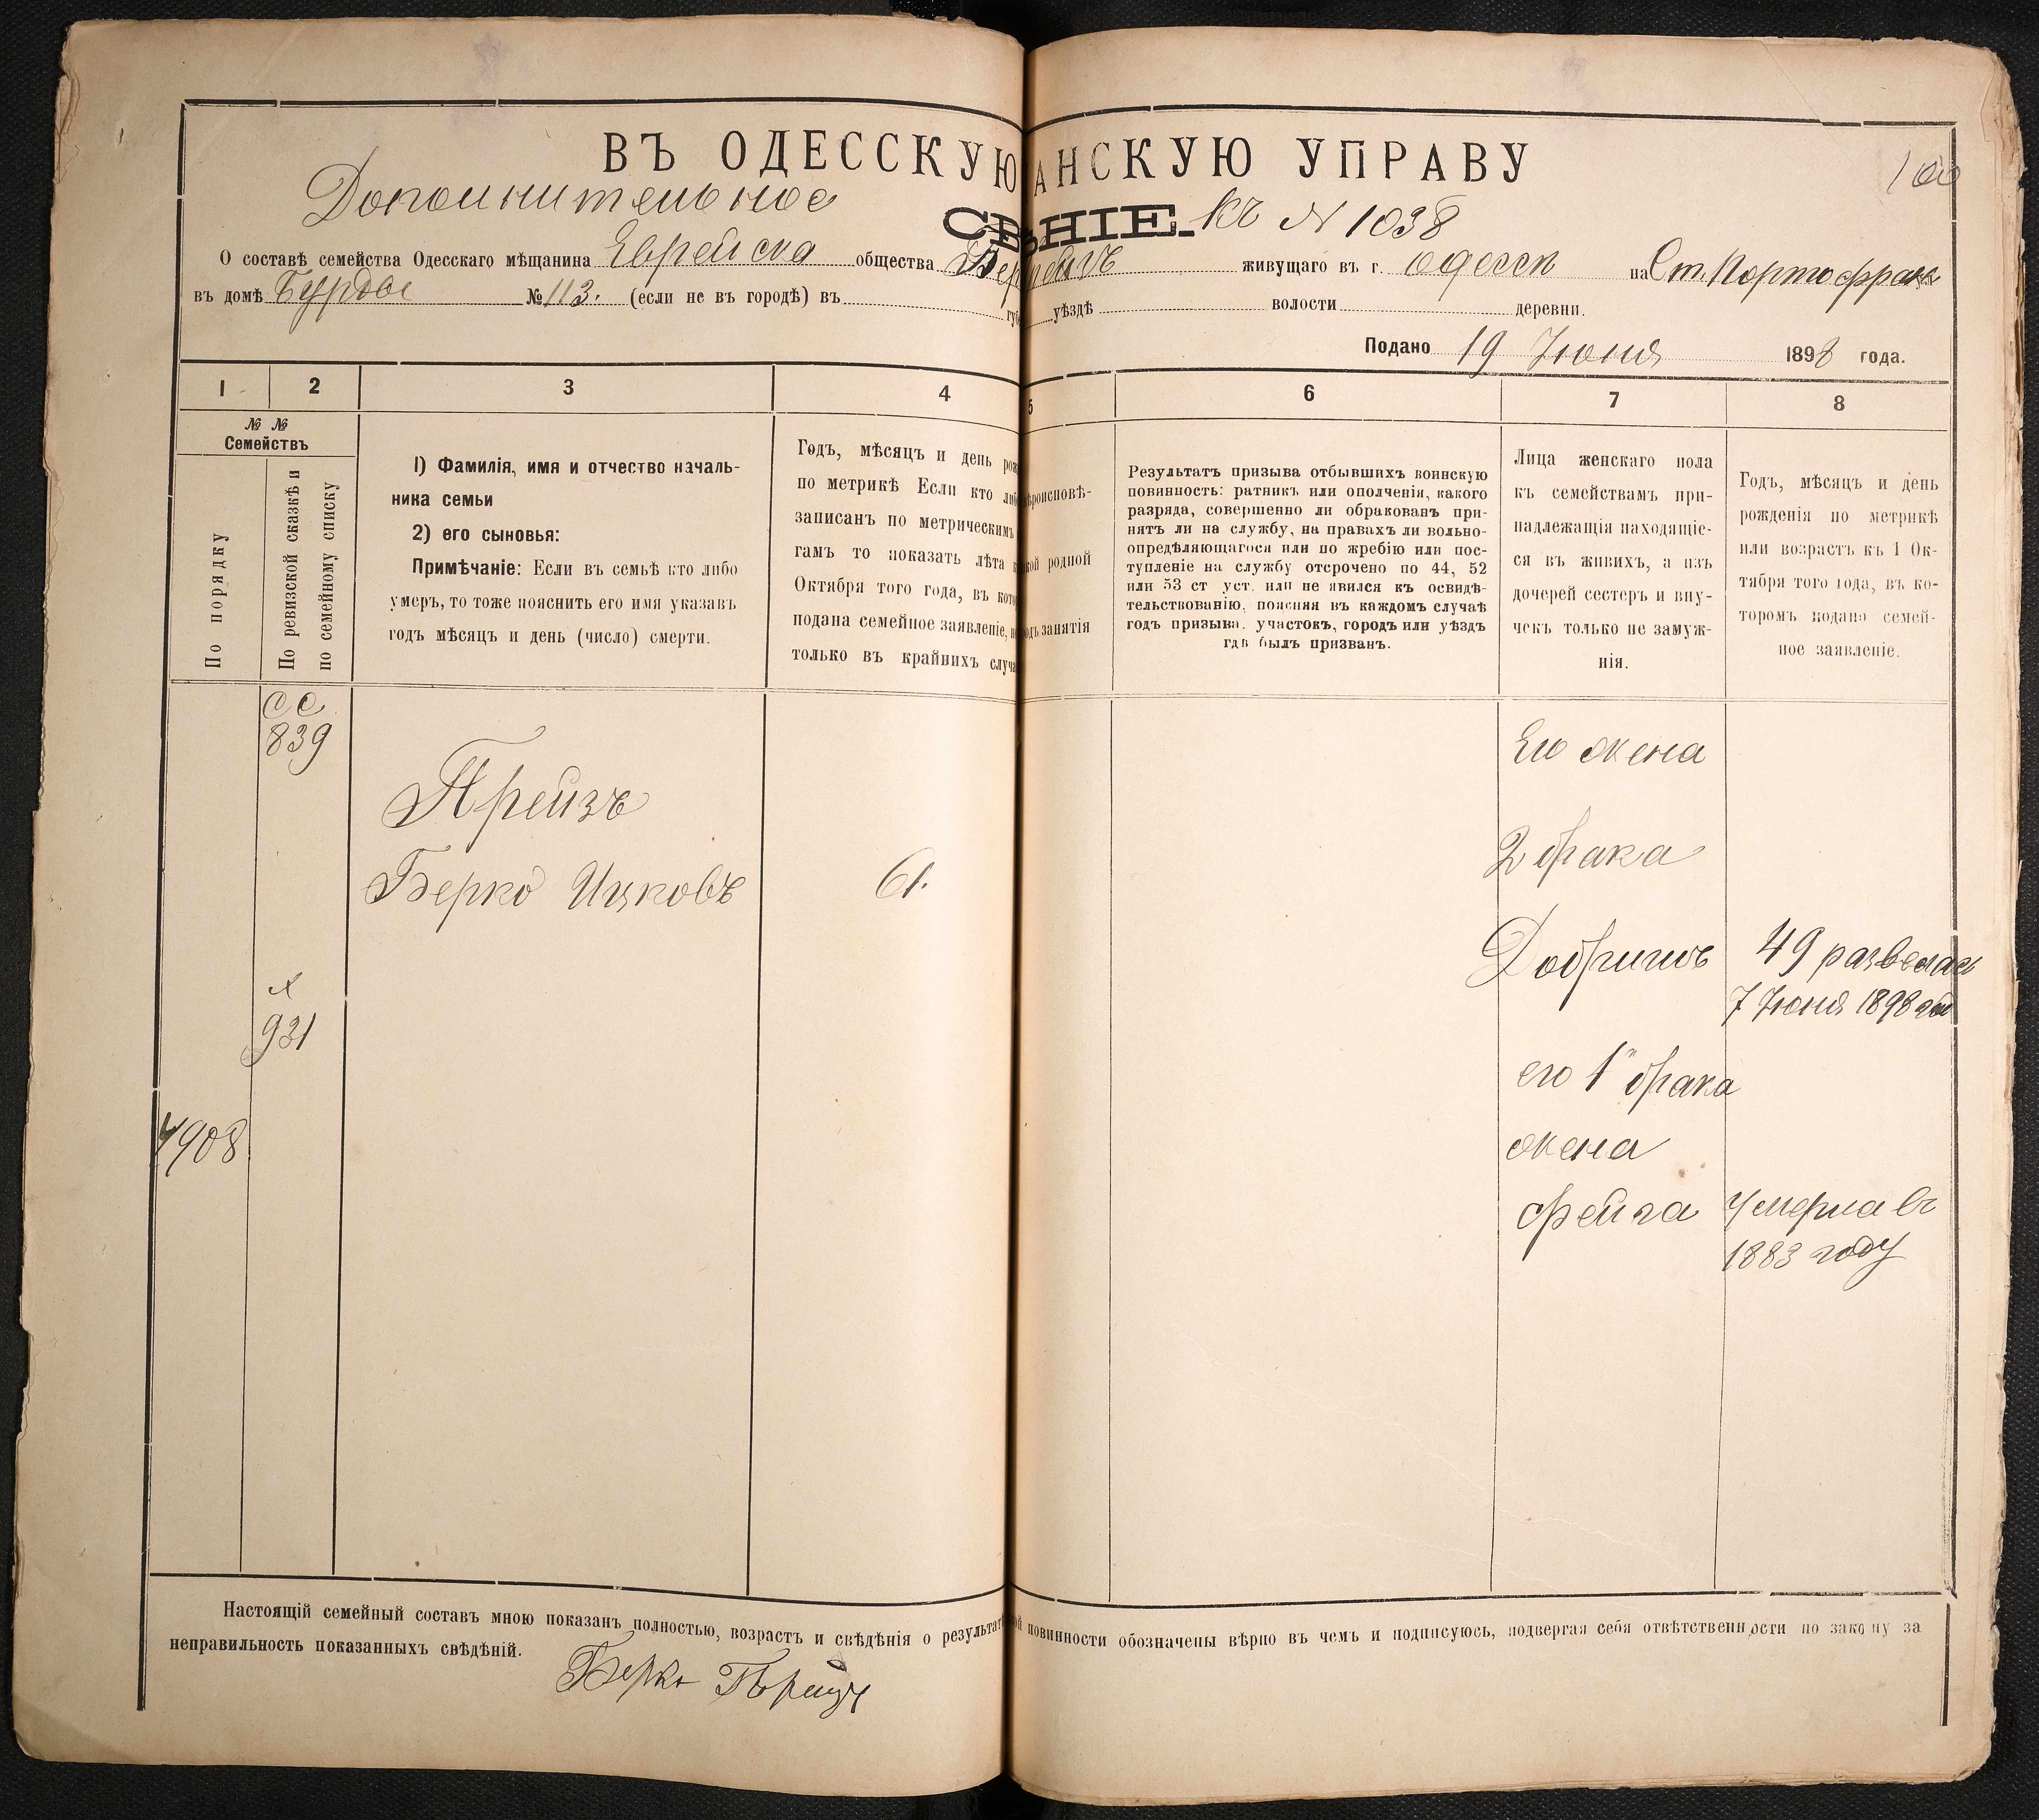 ВЪ ОДЕССКУЮ АНСКУЮ УПРАВУ
100
Дополнительное
СВ НІЕ. къ N 1038
О составѣ семейства Одесскаго мѣщанина Еврейска общества живущаго въ г. Одесск на Ст. Портофран
въ домѣ Бурдъ № 113. (если не въ городѣ) въ губ уѣздѣ волости деревни.
Подано 19 Июня 1898 года.
1 2 3 4 5 6 7 8
№ № Семействъ
По порядку
По ревизской сказкѣ и
по семейному списку
1) Фамилія, имя и отчество началь-
ника семьи
2) его сыновья:
Примѣчаніе: Если въ семьѣ кто либо
умеръ, то тоже пояснить его имя указавъ
годъ мѣсяцъ и день (число) смерти.
Годъ, мѣсяцъ и день рож
по метрикѣ Если кто либо
записанъ по метрическимъ
гамъ то показать лѣта к
Октября того года, въ кото
подана семейное заявленіе, н
только въ крайнихъ случа
ѣроисповѣ-
кой родной
одъ занятія
Результатъ призыва отбывшихъ воинскую
повинность: ратникъ или ополченія, какого
разряда, совершенно ли обракованъ при-
нятъ ли на службу, на правахъ ли вольно-
опредѣляющагося или по жребію или пос-
тупленіе на службу отсрочено по 44, 52
или 53 ст уст. или не явился къ освидѣ-
тельствованію, поясняя въ каждомъ случаѣ
годъ призыва, участокъ, городъ или уѣздъ
гдѣ былъ призванъ.
Лица женскаго пола
къ семействамъ при-
надлежащія находящіе-
ся въ живихъ, а изъ
дочерей сестеръ и вну-
чекъ только не замуж-
нія.
Годъ, мѣсяцъ и день
рожденія по метрикѣ
или возрастъ къ 1 Ок-
тября того года, въ ко-
торомъ подано семей-
ное заявленіе.
СС
839
Прейзъ
Берко Ицковъ
61.
Его жена
2 брака
Добришъ
49 развелась
7 Июня 1898 года
931
его 1го брака
жена
4908
Фейга
умерла въ
1883 году
Настоящій семейный составъ мною показанъ полностью, возрастъ и свѣдѣнія о результат ой повинности обозначены вѣрно въ чемъ и подписуюсь, подвергая себя отвѣтственности по закону за
неправильность показанныхъ свѣдѣній.
Берко Прейзъ